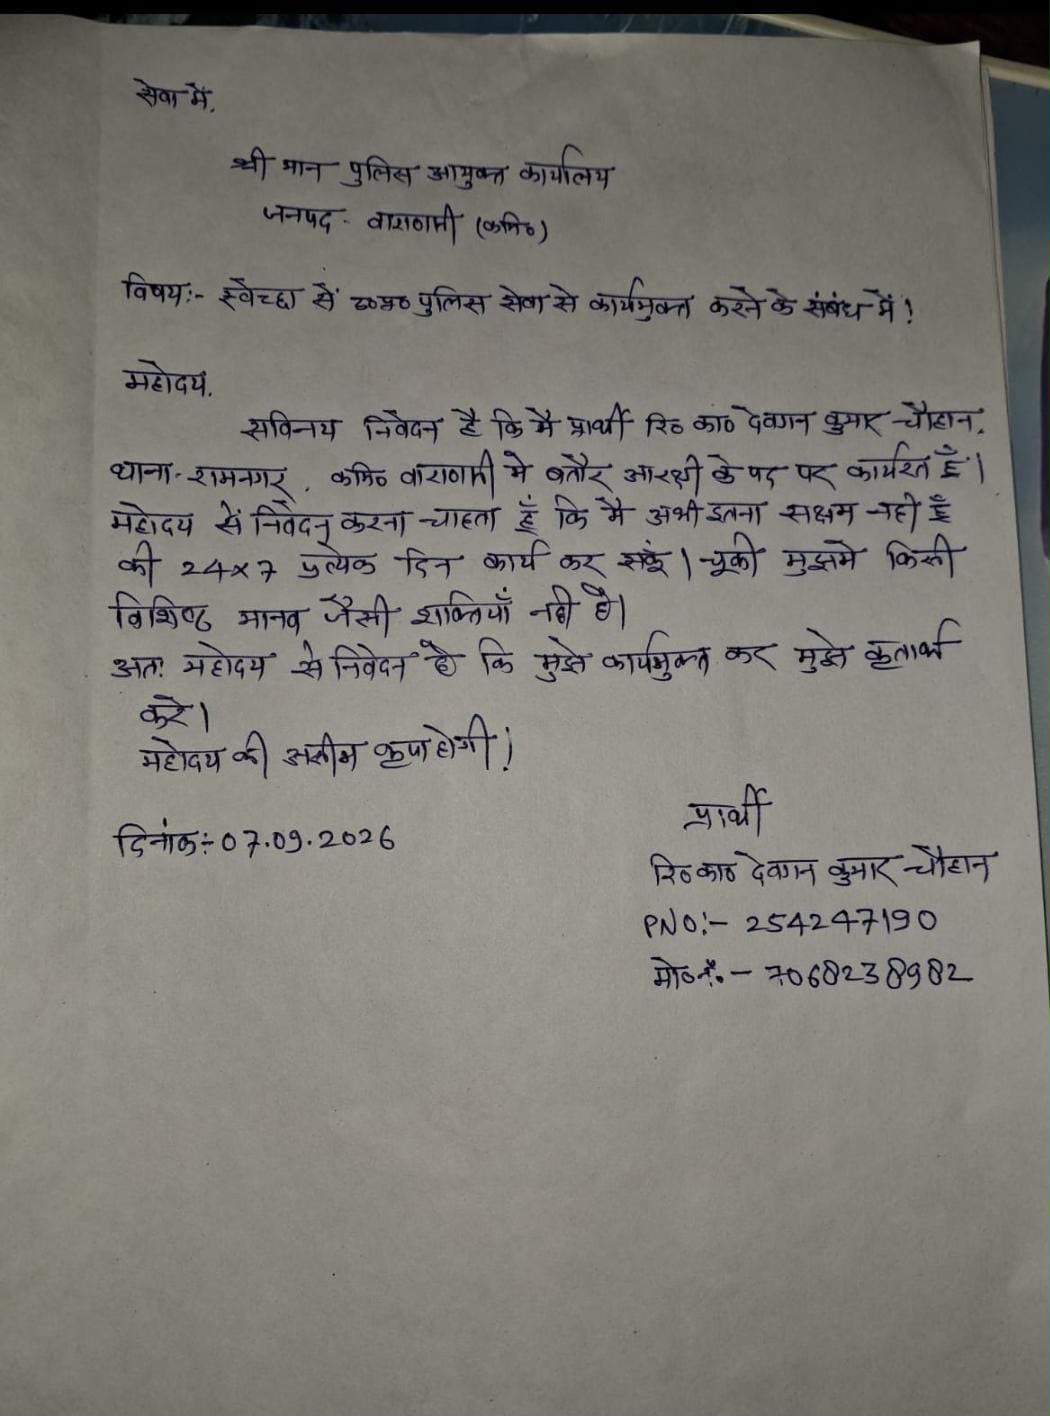 सेवा में,
श्री मान पुलिस आयुक्त कार्यालय
जनपद - वाराणसी (कमि०)
विषय:- स्वेच्छा से उ०प्र० पुलिस सेवा से कार्यमुक्त करने के संबंध में!
महोदय,
सविनय निवेदन है कि मै प्रार्थी रि० का० देवगन कुमार चौहान,
थाना- रामनगर, कमि० वाराणसी मे बतौर आरक्षी के पद पर कार्यरत हूँ।
महोदय से निवेदन करना चाहता हूँ कि मै अभी इतना सक्षम नही हूँ
की 24x7 प्रत्येक दिन कार्य कर सकूं। चूकी मुझमे किसी
विशिष्ठ मानव जैसी शक्तियाँ नही है।
अत: महोदय से निवेदन है कि मुझे कार्यमुक्त कर मुझे कृतार्थ
करे।
महोदय की असीम कृपा होगी!
प्रार्थी
दिनांक:- 07.09.2026
रि० का० देवगन कुमार चौहान
PNO:- 254247190
मो० नं०- 7068238982